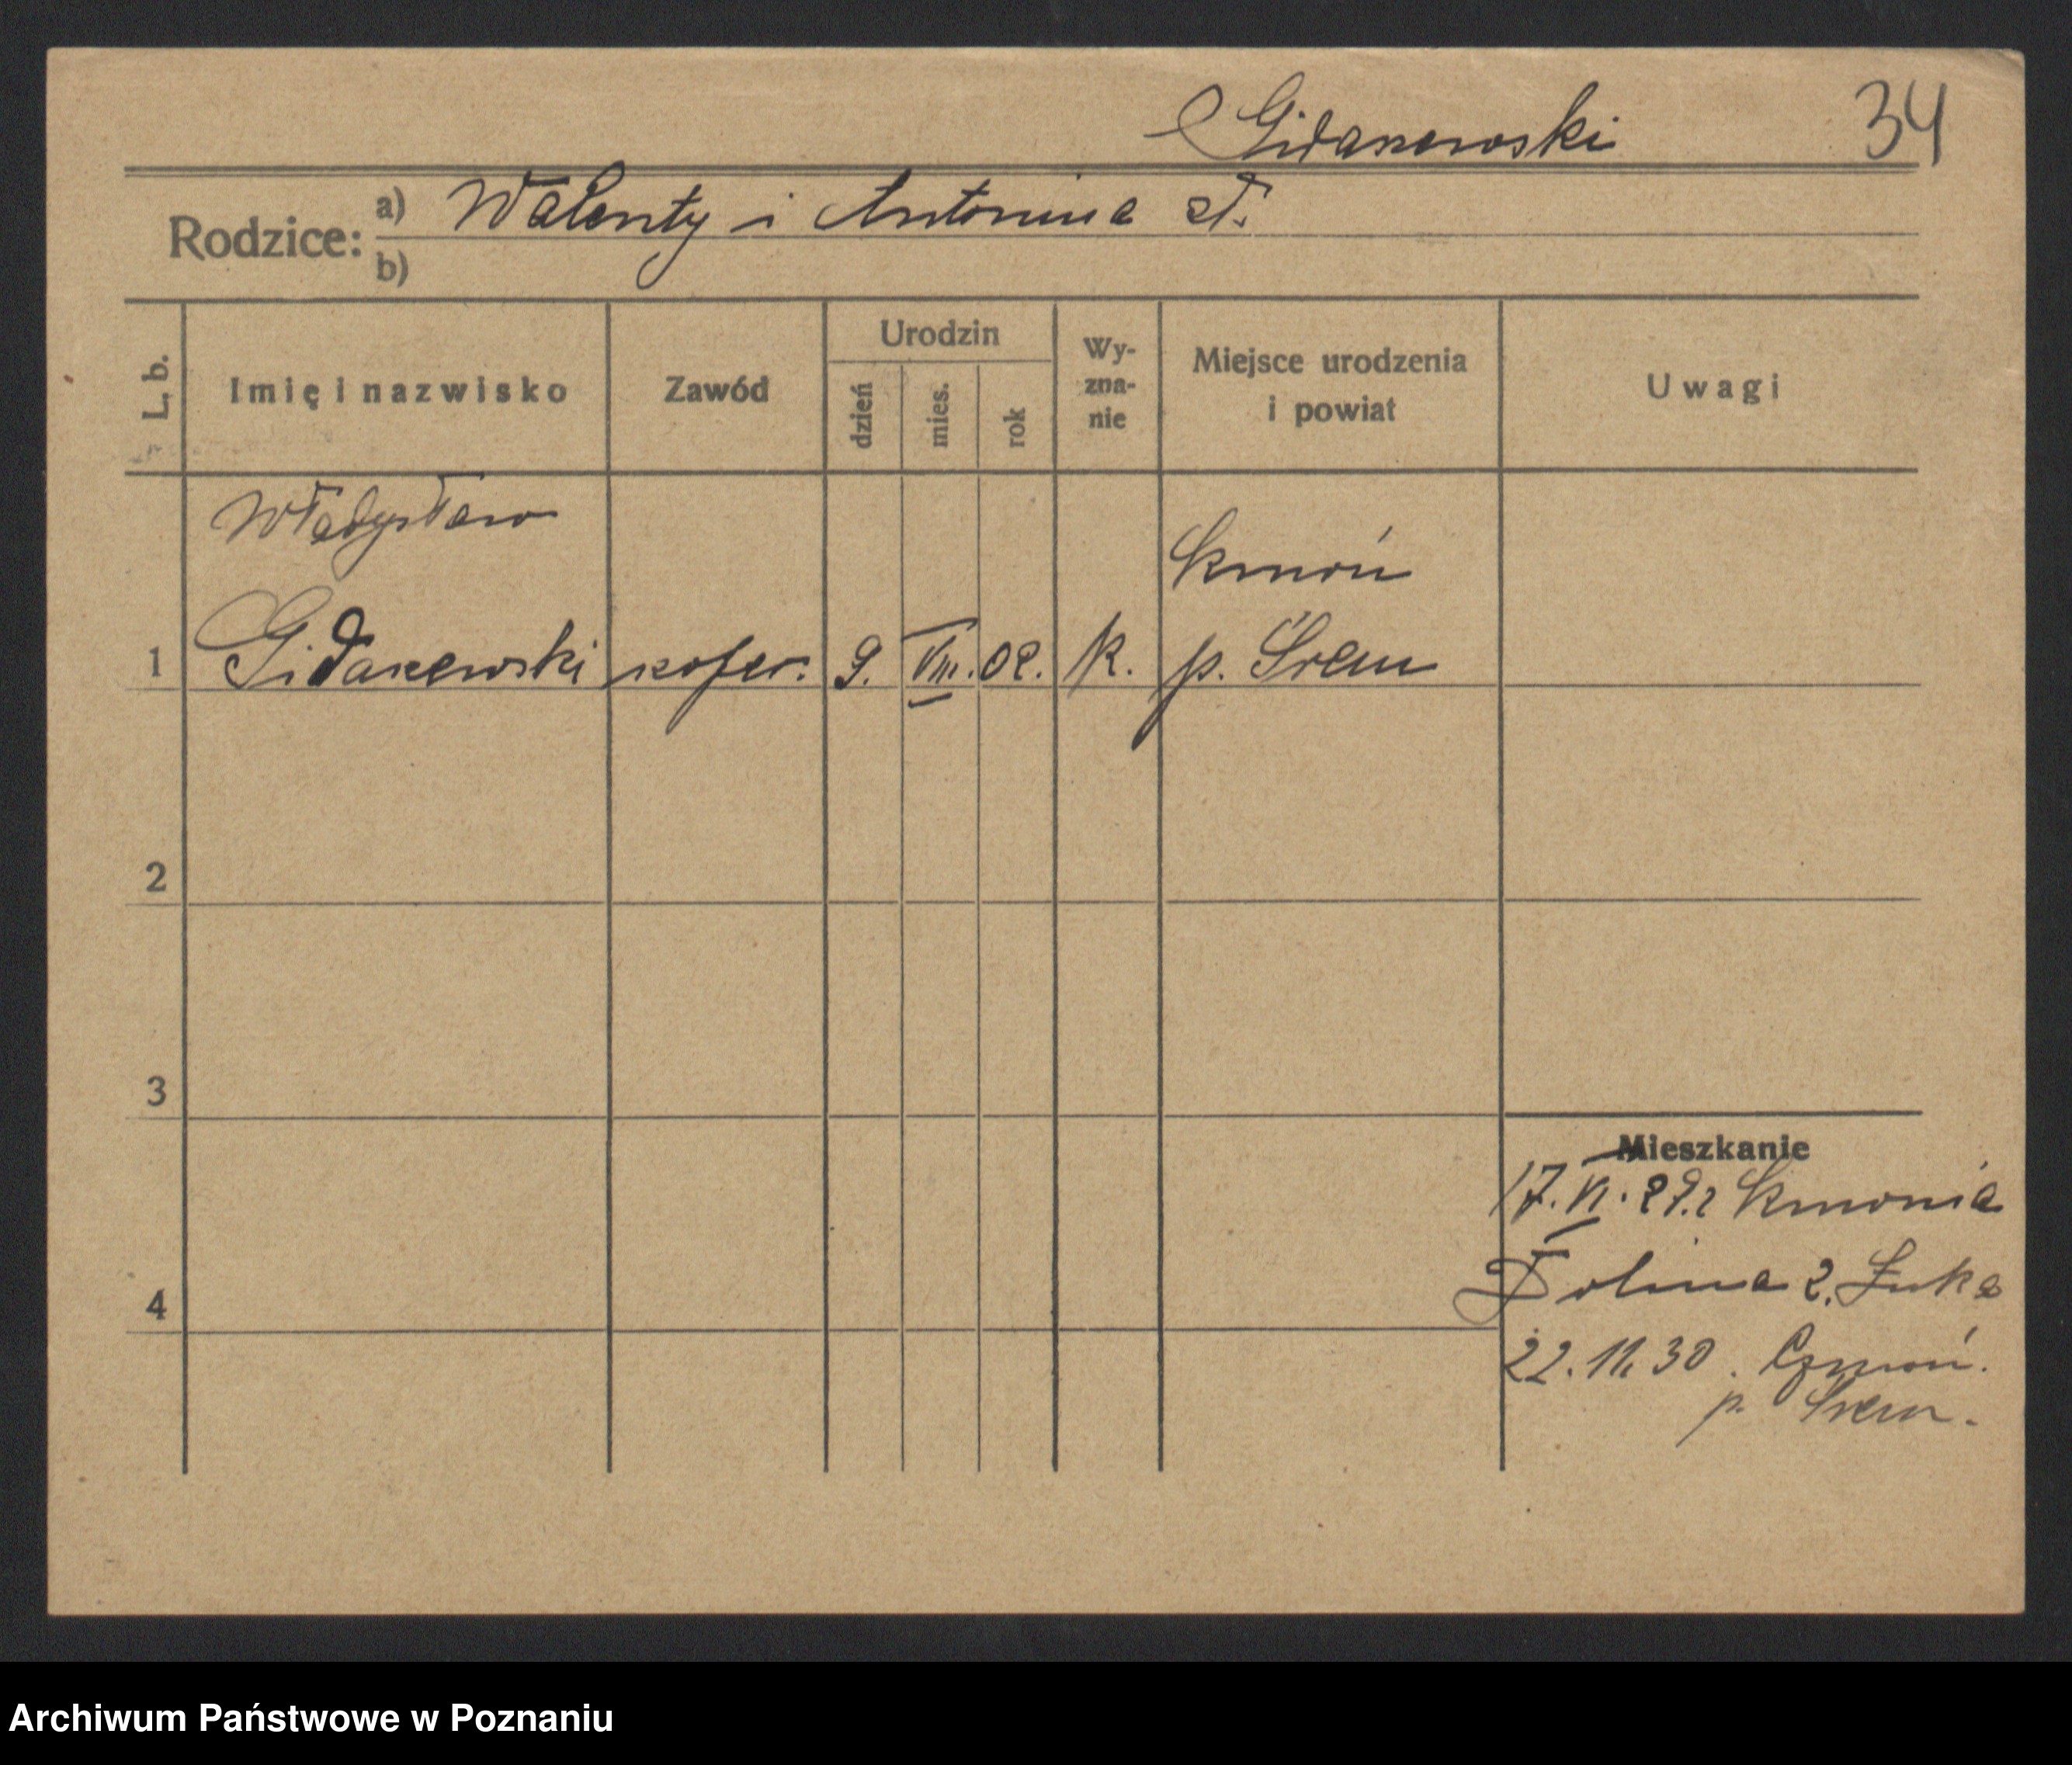 Gidaszewski 34
Rodzice: a) Walenty i Antonina
b)
L. b. Imię i nazwisko Zawód Urodzin dzień mies. rok Wyznanie Miejsce urodzenia i powiat Uwagi
Władysław
Kmoń
1 szofer. 9. VIII. 02. k. p. Śrem
2
3
Mieszkanie
17. VI. 29. z Kmonia
4 Dolina 2.
22.11.30. Czmoń.
p. Śrem.
Archiwum Państwowe w Poznaniu